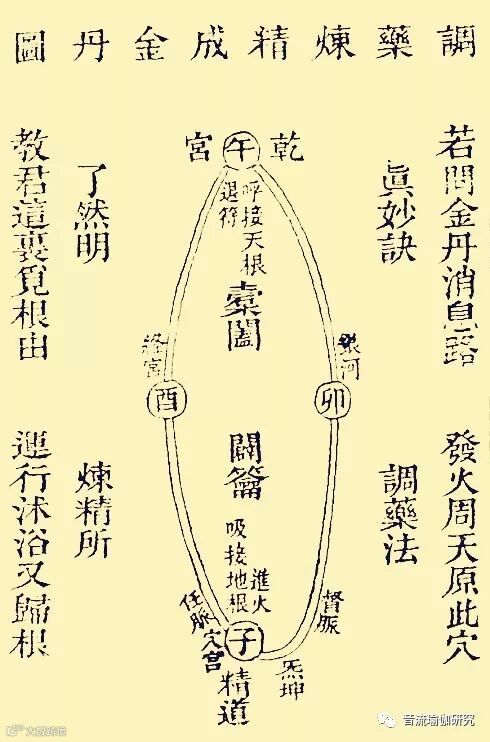 調藥煉精成金丹圖
若問金丹消息路
發火周天原此穴
眞妙訣
調藥法
乾宮
午
呼接天根
退符
橐闔
銀河
卯
絳宮
酉
闢籥
進火
吸接地根
督脈
任脈
子
炁坤
穴宮
精道
了然明
煉精所
教君這裏覓根由
運行沐浴又歸根
大叔跨境
音流瑜伽研究